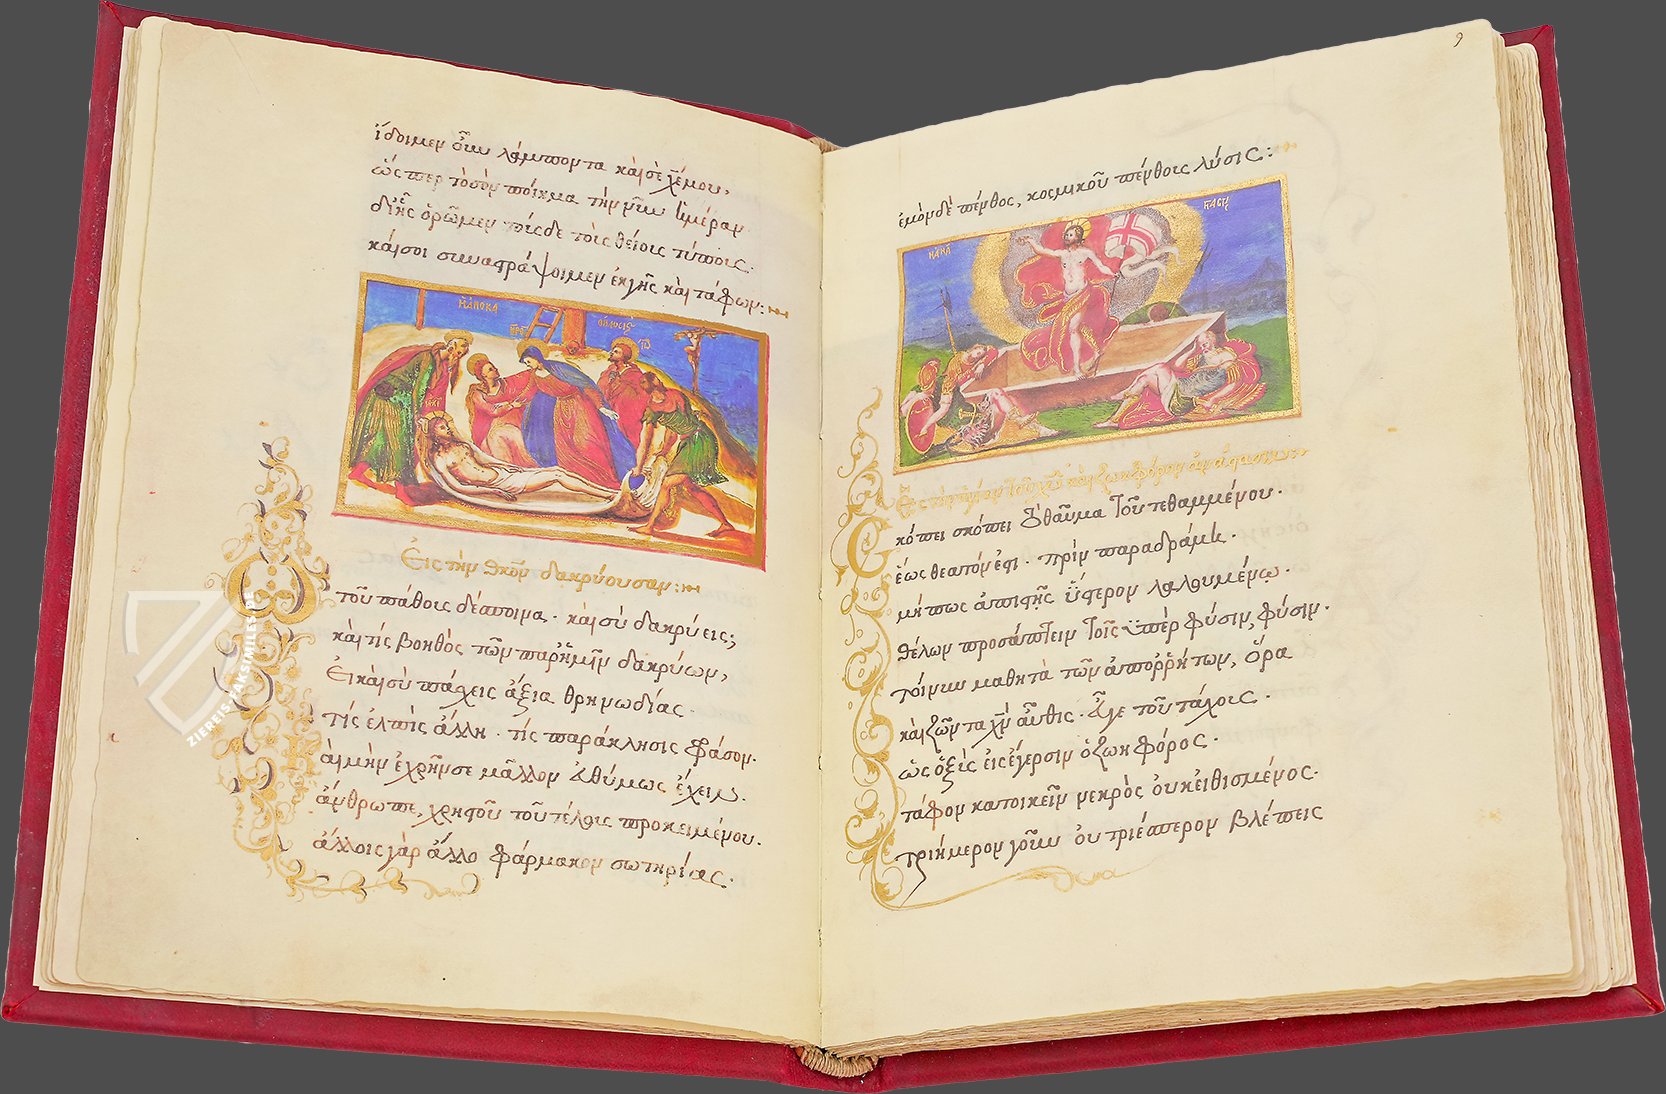 ἴδοιμεν οὕτω λάμποντα καὶ σὲ χἡμοῦ,
ὥσπερ τοσὸν ποίκμα τὴν νῦν ἡμέραν
δι' ἧς ὁρῶμεν τοῖσδε τοῖς θείοις τύποις.
καί σοι συναστράψοιμεν ἐκ γῆς καὶ τάφων:
Εἰς τὴν Θκον δακρύουσαν:
τοῦ πάθους δέσποινα. καὶ σὺ δακρύεις;
καὶ τίς βοηθὸς τῶν παρ' ἡμῖν δακρύων,
Εἰ καὶ σὺ πάσχεις ἄξια θρηνωδίας.
τίς ἐλπὶς ἄλλη. τίς παράκλησις φράσον.
αἲ μὴν ἐχρῆν σε μᾶλλον εὐθύμως ἔχειν.
ἄνθρωπε, χρηστοῦ τοῦ τέλους προκειμένου.
ἄλλοις γὰρ ἄλλο φάρμακον σωτηρίας.
9
ἐμὸν δὲ πένθος, κοσμικοῦ πένθους λύσις:
Εἰς τὴν ἁγίαν τοῦ χυ καὶ ζωηφόρον ἀνάστασιν
Σκόπει σκόπει τὸ θαῦμα τοῦ τεθαμμένου.
ἕως θεατόν ἐστι. πρὶν παραδράμῃ.
μήπως ἀπιστῇς ὕστερον λαλουμένῳ.
θέλων προσάπτειν τοῖς ὑπὲρ φύσιν, φύσιν.
τοίνυν μαθητὰ τῶν ἀπορρήτων, ὅρα
καὶ ζῶντα χν αὖθις. εὖγε τοῦ τάχους.
ὡς ὀξὺς εἰς ἔγερσιν ὁ ζωηφόρος.
τάφον κατοικεῖν νεκρὸς οὐκ εἰθισμένος.
τριήμερον γοῦν οὐ τριέσπερον βλέπεις
ZIEREIS-FAKSIMILES.DE